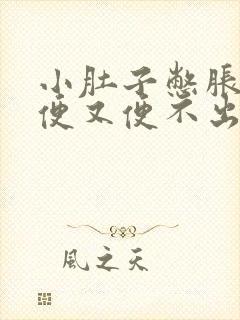 小肚子憋胀
便又便不出
風之天